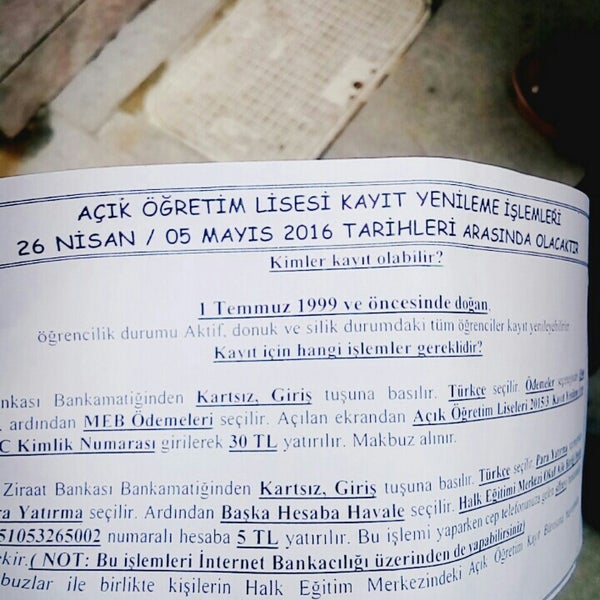 AÇIK ÖĞRETİM LİSESİ KAYIT YENİLEME İŞLEMLERİ
26 NİSAN / 05 MAYIS 2016 TARİHLERİ ARASINDA OLACAKTIR
Kimler kayıt olabilir?
1 Temmuz 1999 ve öncesinde doğan,
öğrencilik durumu Aktif, donuk ve silik durumdaki tüm öğrenciler kayıt yenileyebilir
Kayıt için hangi işlemler gereklidir?
nkası Bankamatiğinden Kartsız, Giriş tuşuna basılır. Türkçe seçilir. Ödemeler
, ardından MEB Ödemeleri seçilir. Açılan ekrandan Açık Öğretim Liseleri 2015/3 Kayıt
C Kimlik Numarası girilerek 30 TL yatırılır. Makbuz alınır.
Ziraat Bankası Bankamatiğinden Kartsız, Giriş tuşuna basılır. Türkçe seçilir. Para Yatırma
ra Yatırma seçilir. Ardından Başka Hesaba Havale seçilir. Halk Eğitimi Merkezi Okul Aile
51053265002 numaralı hesaba 5 TL yatırılır. Bu işlemi yaparken cep telefonunuza gelen
ekir.( NOT: Bu işlemleri İnternet Bankacılığı üzerinden de yapabilirsiniz)
buzlar ile birlikte kişilerin Halk Eğitim Merkezindeki Açık Öğretim Kayıt Bürosuna